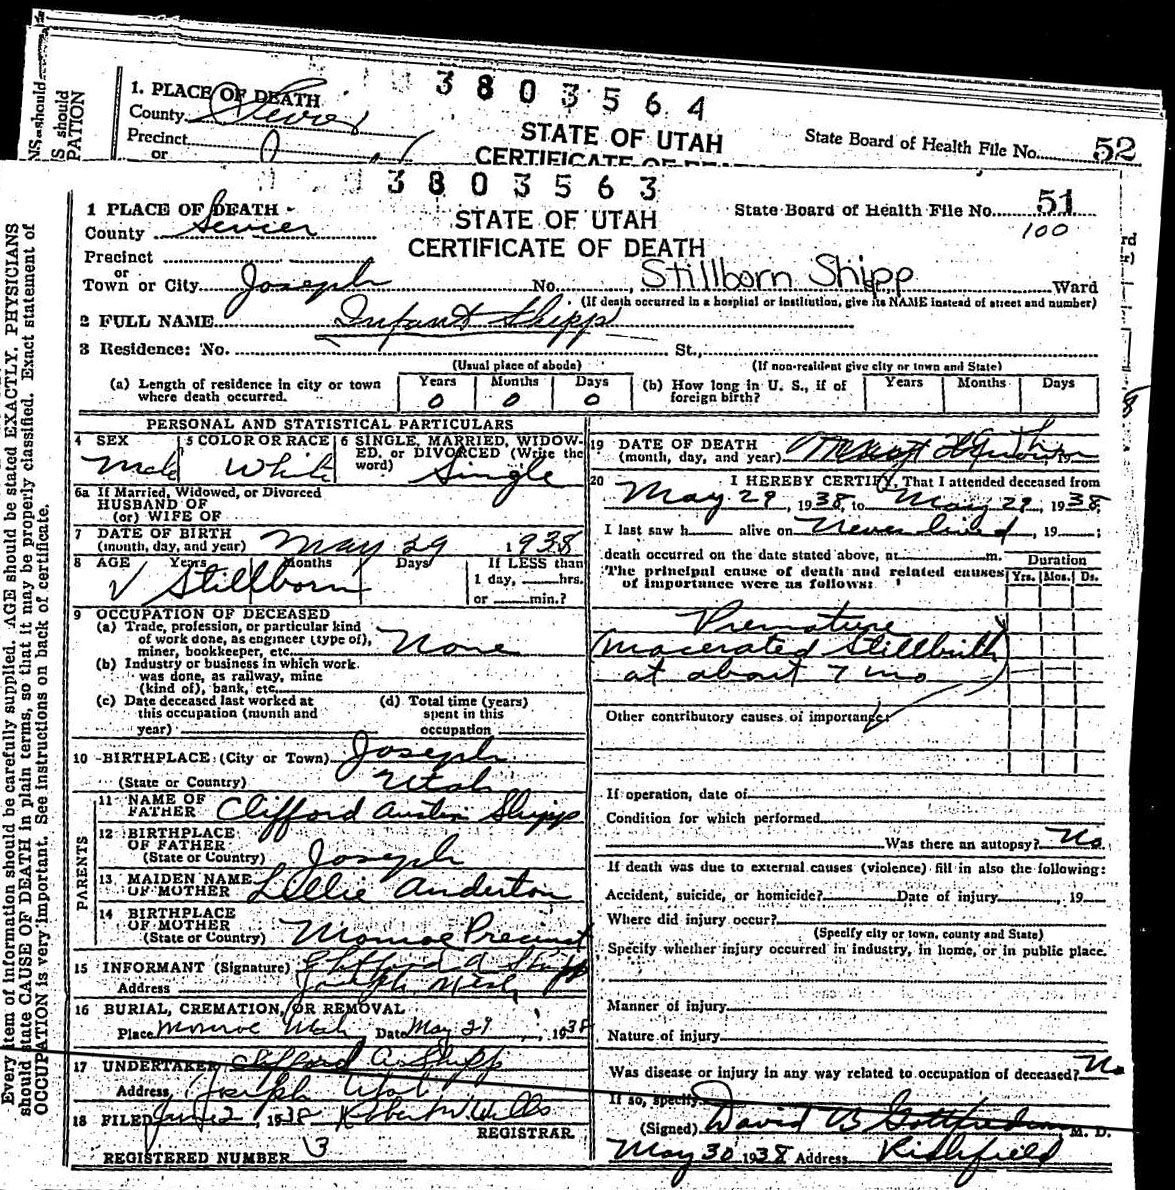 NS, should
S should
PATION
3803564
1. PLACE OF DEATH
County Sevier
Precinct
or
STATE OF UTAH
CERTIFICATE OF
State Board of Health File No. 52
3803563
1 PLACE OF DEATH
County Sevier
STATE OF UTAH
CERTIFICATE OF DEATH
State Board of Health File No. 51
100
Precinct
or
Town or City Joseph No. Stillborn Shipp Ward
(If death occurred in a hospital or institution, give its NAME instead of street and number)
2 FULL NAME Infant Shipp
3 Residence: No. St.,
(Usual place of abode) (If non-resident give city or town and State)
(a) Length of residence in city or town where death occurred. Years 0 Months 0 Days 0
(b) How long in U. S., if of foreign birth? Years Months Days
PERSONAL AND STATISTICAL PARTICULARS
4 SEX Male
5 COLOR OR RACE White
6 SINGLE, MARRIED, WIDOWED, or DIVORCED (Write the word) Single
6a If Married, Widowed, or Divorced
HUSBAND OF
(or) WIFE OF
7 DATE OF BIRTH
(month, day, and year) May 29 1938
8 AGE Years Months Days If LESS than
Stillborn 1 day, hrs.
or min.?
9 OCCUPATION OF DECEASED
(a) Trade, profession, or particular kind
of work done, as engineer (type of),
miner, bookkeeper, etc. None
(b) Industry or business in which work
was done, as railway, mine
(kind of), bank, etc.
(c) Date deceased last worked at
this occupation (month and
year)
(d) Total time (years)
spent in this
occupation
10 BIRTHPLACE (City or Town) Joseph
(State or Country) Utah
PARENTS
11 NAME OF
FATHER Clifford Austin Shipp
12 BIRTHPLACE
OF FATHER
(State or Country) Joseph
13 MAIDEN NAME
OF MOTHER Lillie Anderton
14 BIRTHPLACE
OF MOTHER
(State or Country) Monroe Precinct
15 INFORMANT (Signature) Clifford A Shipp
Address Joseph Utah
16 BURIAL, CREMATION, OR REMOVAL
Place Monroe Utah Date May 29, 1938
17 UNDERTAKER Clifford A. Shipp
Address Joseph Utah
18 FILED June 2 1938 Robert W Wells
REGISTRAR
REGISTERED NUMBER 3
19 DATE OF DEATH
(month, day, and year) 19
20 I HEREBY CERTIFY, That I attended deceased from
May 29, 1938, to May 29, 1938
I last saw h alive on Never lived, 19 ;
death occurred on the date stated above, at m.
The principal cause of death and related causes
of importance were as follows:
Duration
Yrs. Mos. Ds.
Premature
(macerated Stillbirth)
at about 7 mo
Other contributory causes of importance:
If operation, date of
Condition for which performed
Was there an autopsy? No
If death was due to external causes (violence) fill in also the following:
Accident, suicide, or homicide? Date of injury , 19
Where did injury occur?
(Specify city or town, county and State)
Specify whether injury occurred in industry, in home, or in public place.
Manner of injury
Nature of injury
Was disease or injury in any way related to occupation of deceased? No
If so, specify
(Signed) David B Gottfredson M. D.
May 30 1938 Address Richfield
Every item of information should be carefully supplied. AGE should be stated EXACTLY. PHYSICIANS
should state CAUSE OF DEATH in plain terms, so that it may be properly classified. Exact statement of
OCCUPATION is very important. See instructions on back of certificate.